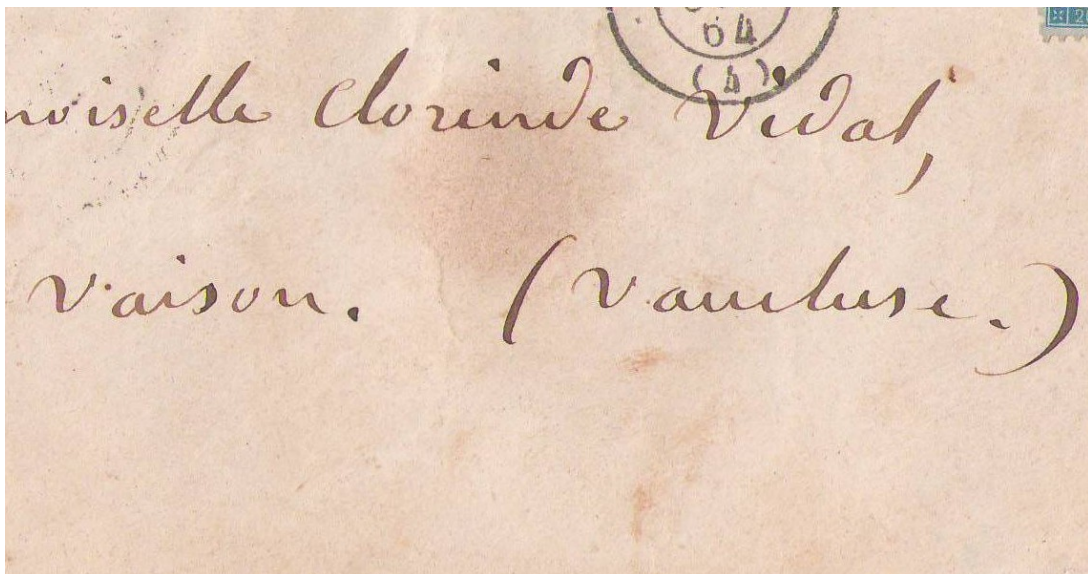 64
(4)
moiselle Clorinde Vidal,
Vaison. (Vaucluse.)